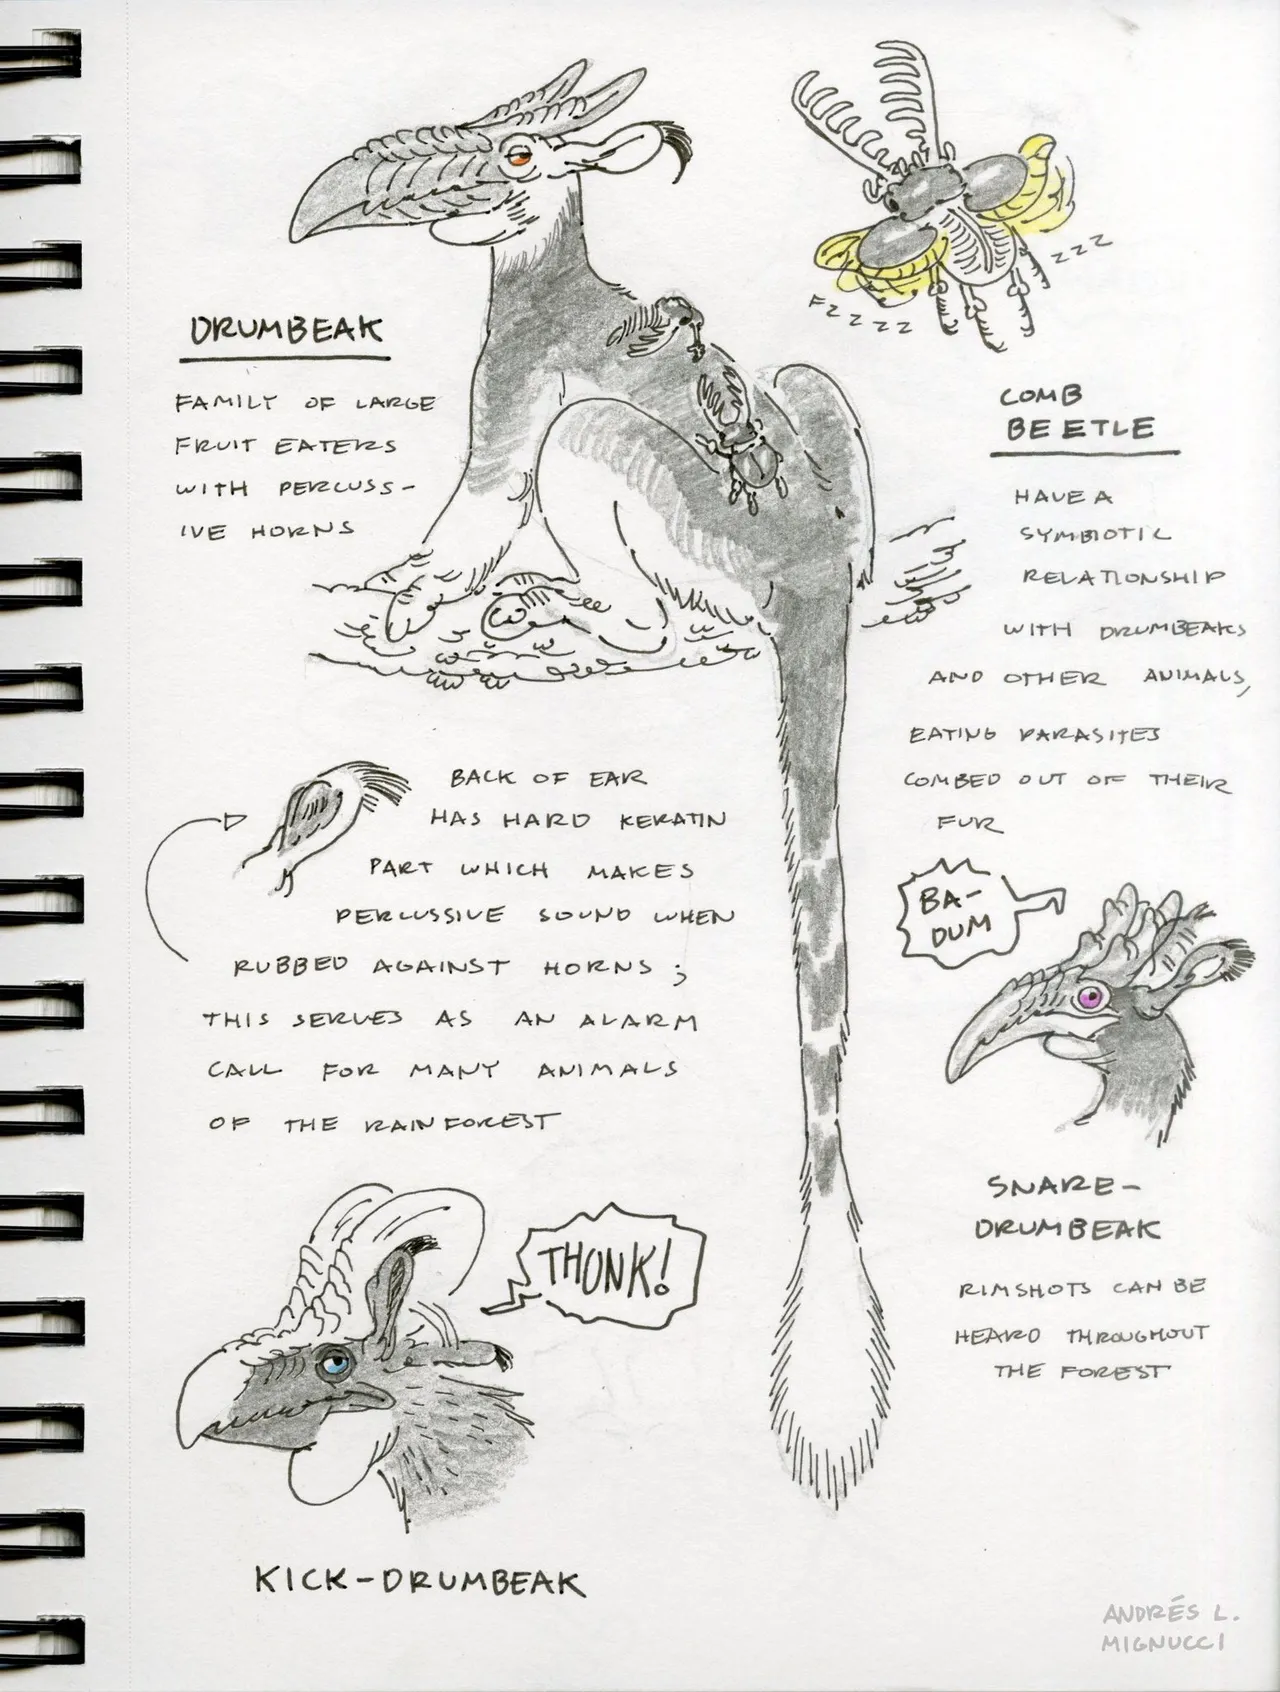 DRUMBEAK
FAMILY OF LARGE
FRUIT EATERS
WITH PERCUSS-
IVE HORNS
FZZZZ
ZZZ
COMB
BEETLE
HAVE A
SYMBIOTIC
RELATIONSHIP
WITH DRUMBEAKS
AND OTHER ANIMALS,
EATING PARASITES
COMBED OUT OF THEIR
FUR
BACK OF EAR
HAS HARD KERATIN
PART WHICH MAKES
PERCUSSIVE SOUND WHEN
RUBBED AGAINST HORNS;
THIS SERVES AS AN ALARM
CALL FOR MANY ANIMALS
OF THE RAINFOREST
BA-
DUM
SNARE-
DRUMBEAK
RIMSHOTS CAN BE
HEARD THROUGHOUT
THE FOREST
THONK!
KICK-DRUMBEAK
ANDRÉS L.
MIGNUCCI